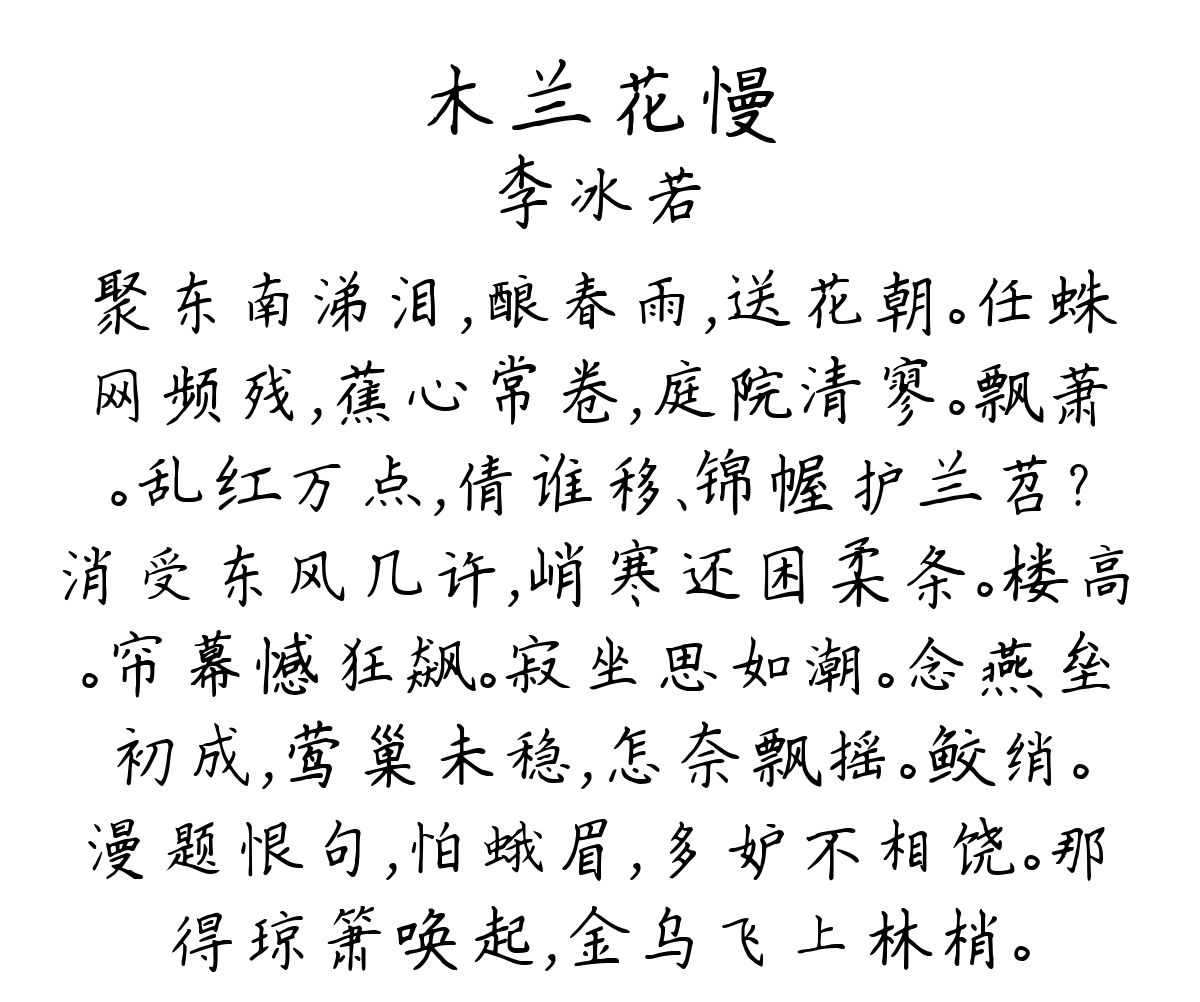 木兰花慢
李冰若
聚东南涕泪,酿春雨,送花朝。任蛛
网频残,蕉心常卷,庭院清寥。飘萧
。乱红万点,倩谁移、锦幄护兰苕?
消受东风几许,峭寒还困柔条。楼高
。帘幕憾狂飙。寂坐思如潮。念燕垒
初成,莺巢未稳,怎奈飘摇。鲛绡。
漫题恨句,怕蛾眉,多妒不相饶。那
得琼箫唤起,金乌飞上林梢。